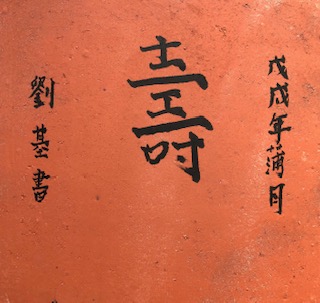 戊戌年蒲月
壽
劉基書